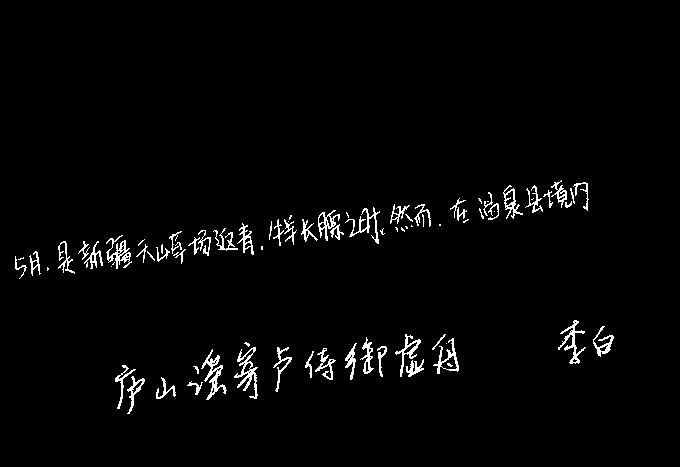 5月,是新疆天山草场返青,牛羊长膘之时。然而,在温泉县境内
庐山谣寄卢侍御虚舟 李白